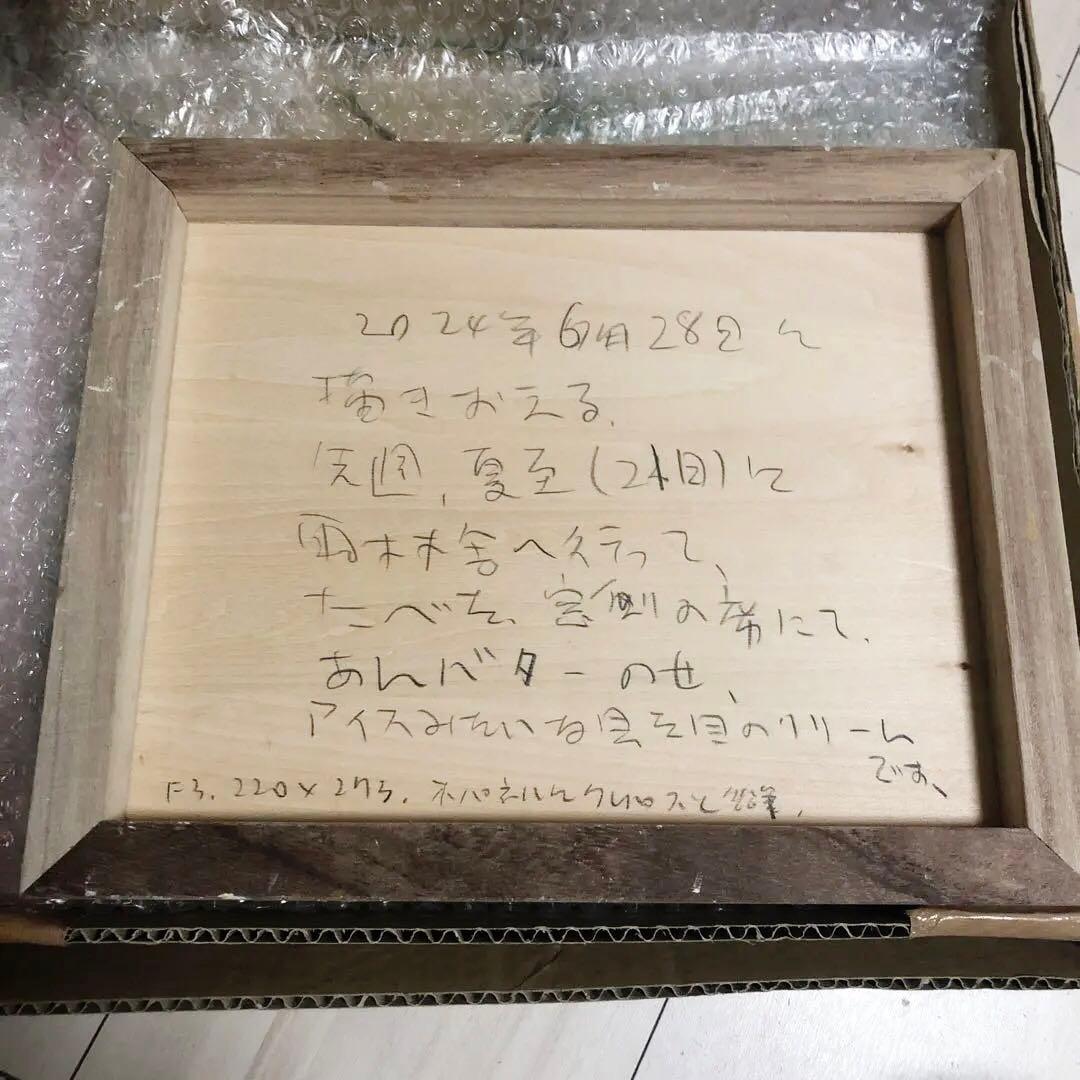 2024年6月28日に
描きおえる.
先週,夏至(21日)に
雨林舎へ行って、
たべた、窓側の席にて、
あんバターのせ、
アイスみたいな見た目のクリーム
です、
F3. 220×273. 木パネルにクレパスと鉛筆,